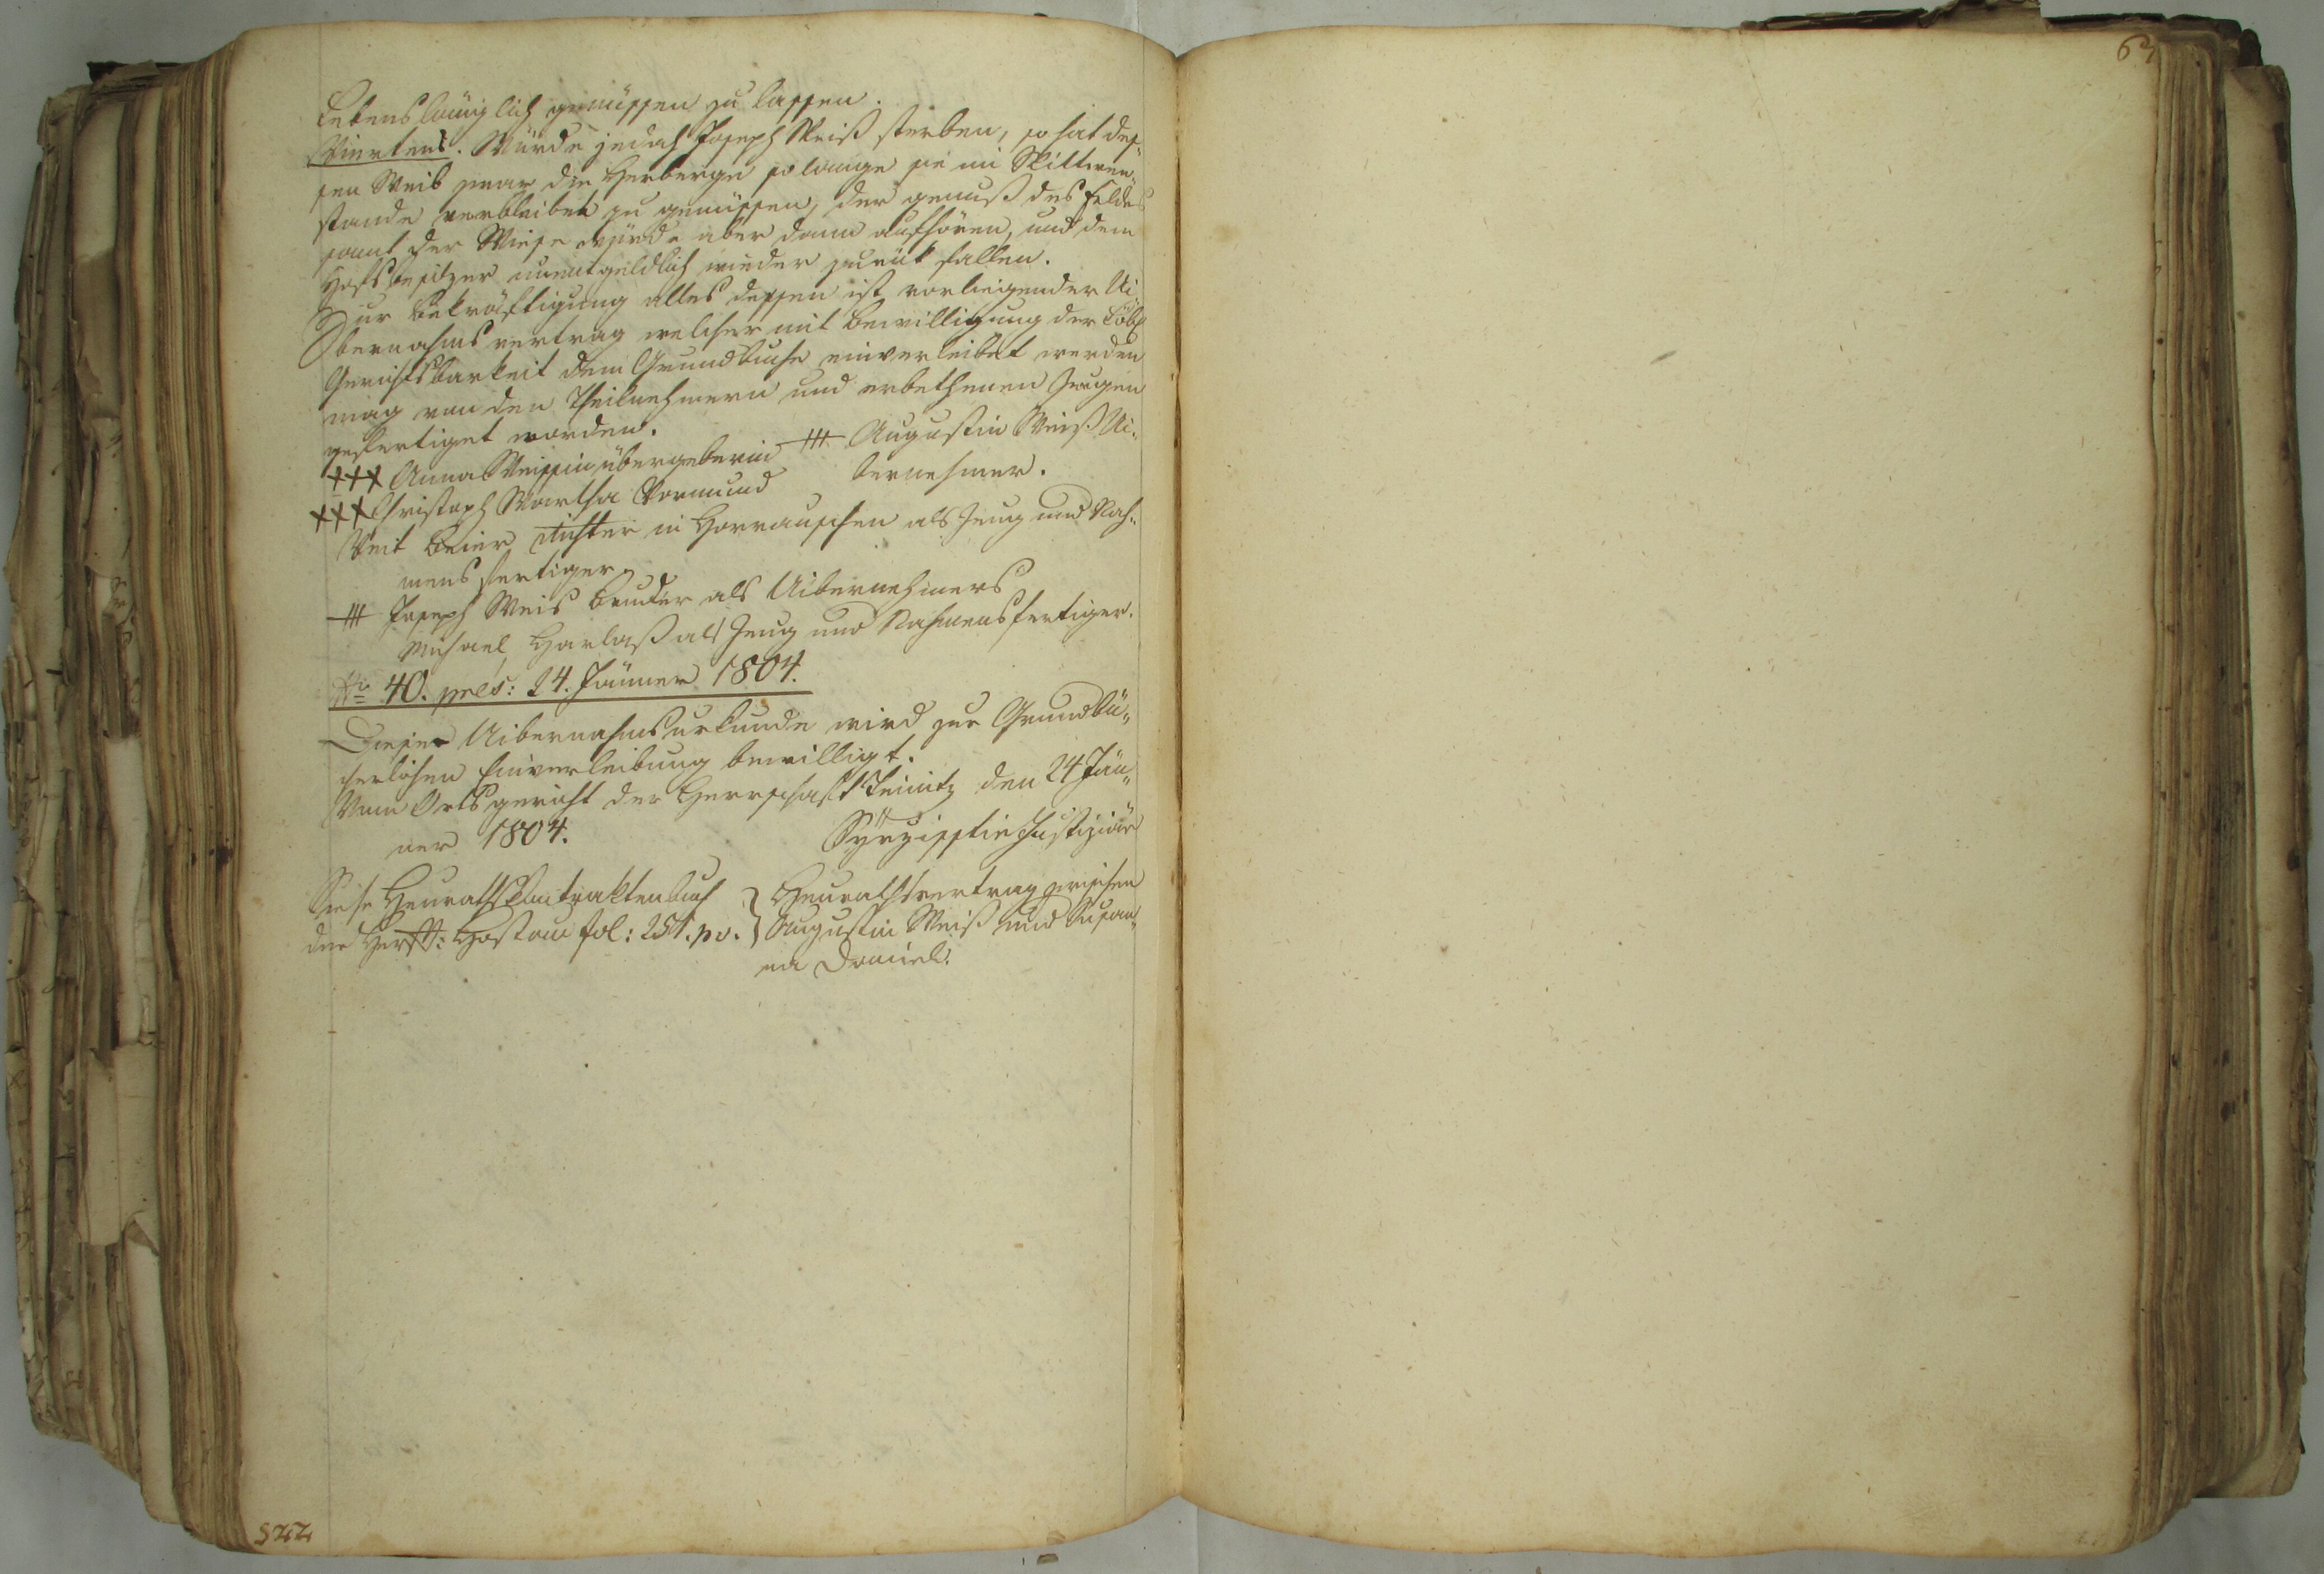 Lebenslänglich genüssen zu lassen.
Viertens. Würde jedoch Joseph Weiß sterben, so hat des„
sen Weib zwar die Herberge so lange sie im Wittwen„
stande verbleibet zu genüssen, der genuß des Feldes
samt der Wiese würde aber dann aufhören, und dem
Hofsbesitzer unentgeldlich wieder zurück fallen.
Zur Bekräftigung alles dessen ist vorliegender Ui„
bernahmsvertrag welcher mit Bewilligung der Löbl
Gerichtsbarkeit dem Grundbuche einverleibet werden
mag von den Theilnehmern und erbethenen Zeugen
gefertiget worden.
+++ Anna Weissin übergeberin +++ Augustin Weiß Ui„
bernehmer.
+++ Christoph Wartha Vormund
Veit Beier Richter in Horrauschen als Zeug und Nah„
mensfertiger
+++ Joseph Weis Bruder als Uibernehmers
Michael Harlaß als Zeug und Nahmensfertiger.
No 40. pres: 24. Jänner 1804.
Dieser Uibernahmsurkunde wird zur Grundbü„
cherlichen Einverleibung bewilligt.
Vom Ortsgericht der Herrschaft Teinitz den 24 Jän„
ner 1804.
Justiziär
Siehe Heurathskontraktenbuch } Heurathsvertrag zwischen
der Herrft: Hostau fol: 251. pv. } Augustin Weiß und Susan„
na Daniel.
64
522